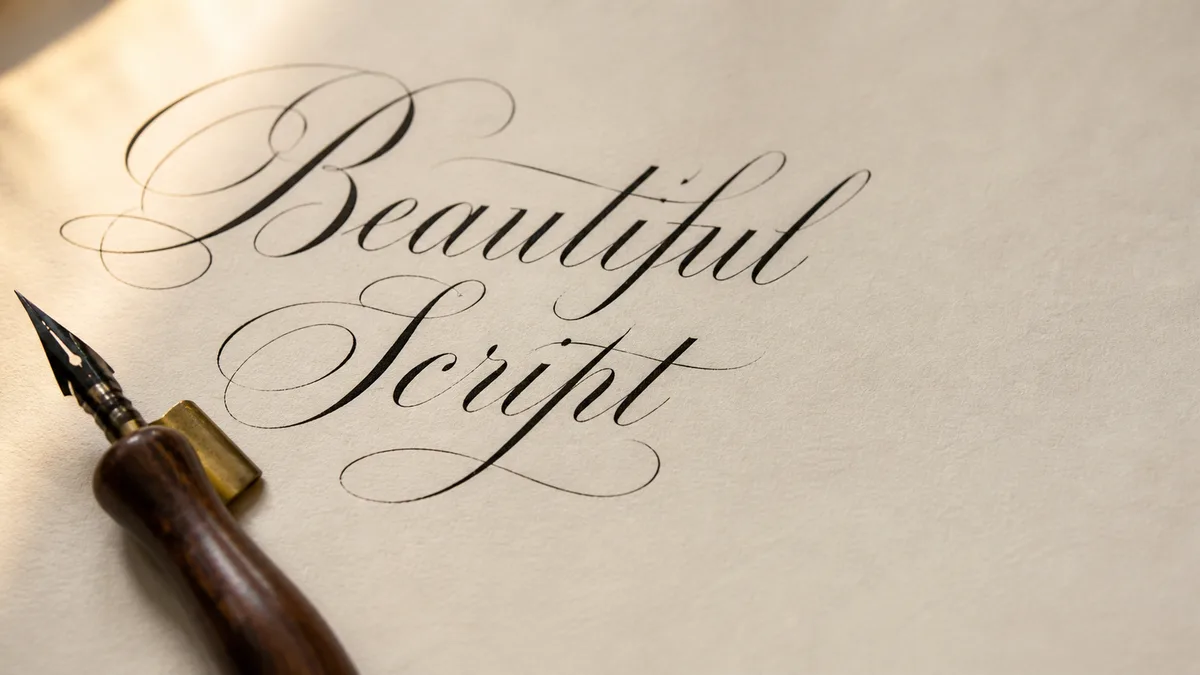 Beautiful
Script